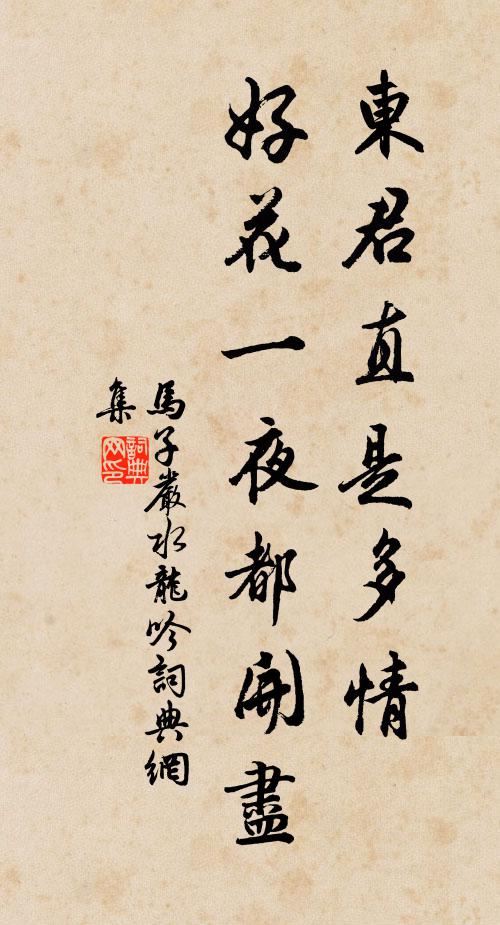 東君直是多情
好花一夜都開盡
馬子嚴水龍吟詞典網
集
詞典
网印